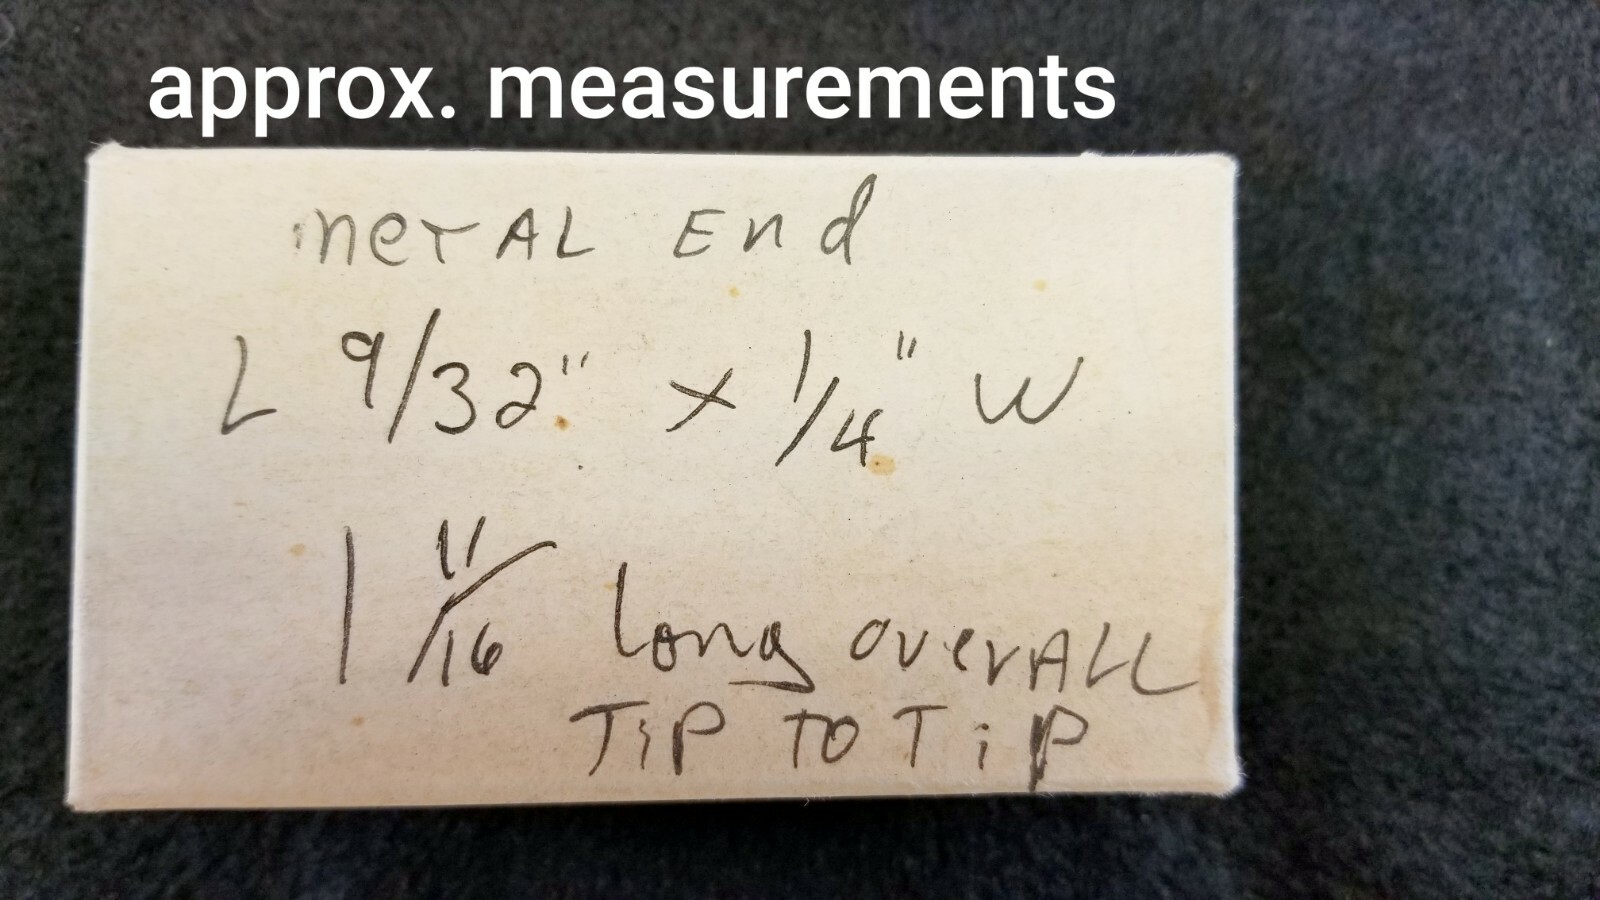 approx. measurements
meTAL End
L 9/32" x 1/4" W
1 11/16 Long overALL
TiP TO TiP